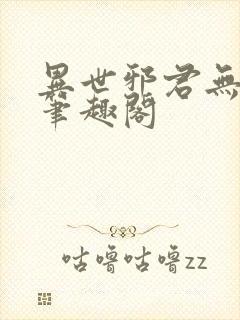 異世邪君無
筆趣閣
咕嚕咕嚕zz